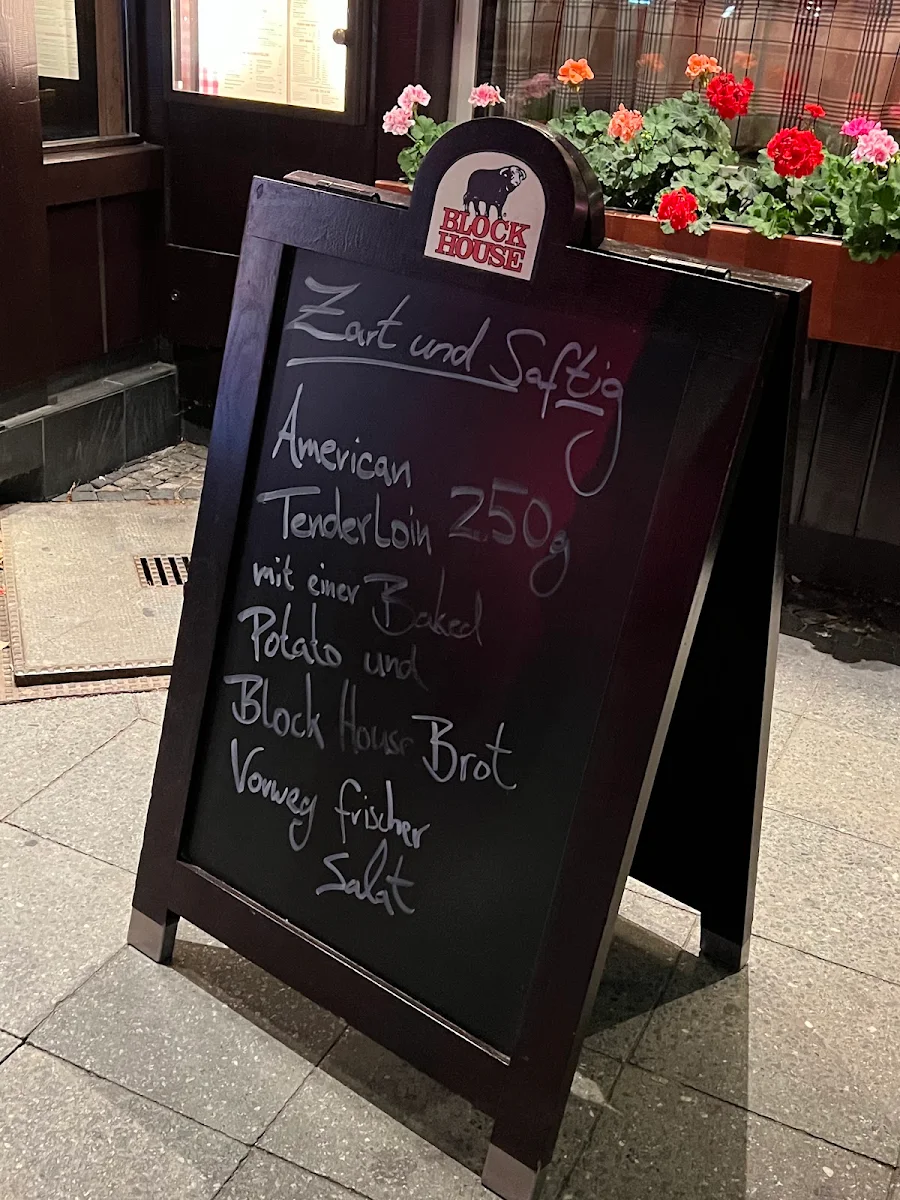 BLOCK
HOUSE
Zart und Saftig
American
Tenderloin 250g
mit einer Baked
Potato und
Block House Brot
Vorweg frischer
Salat